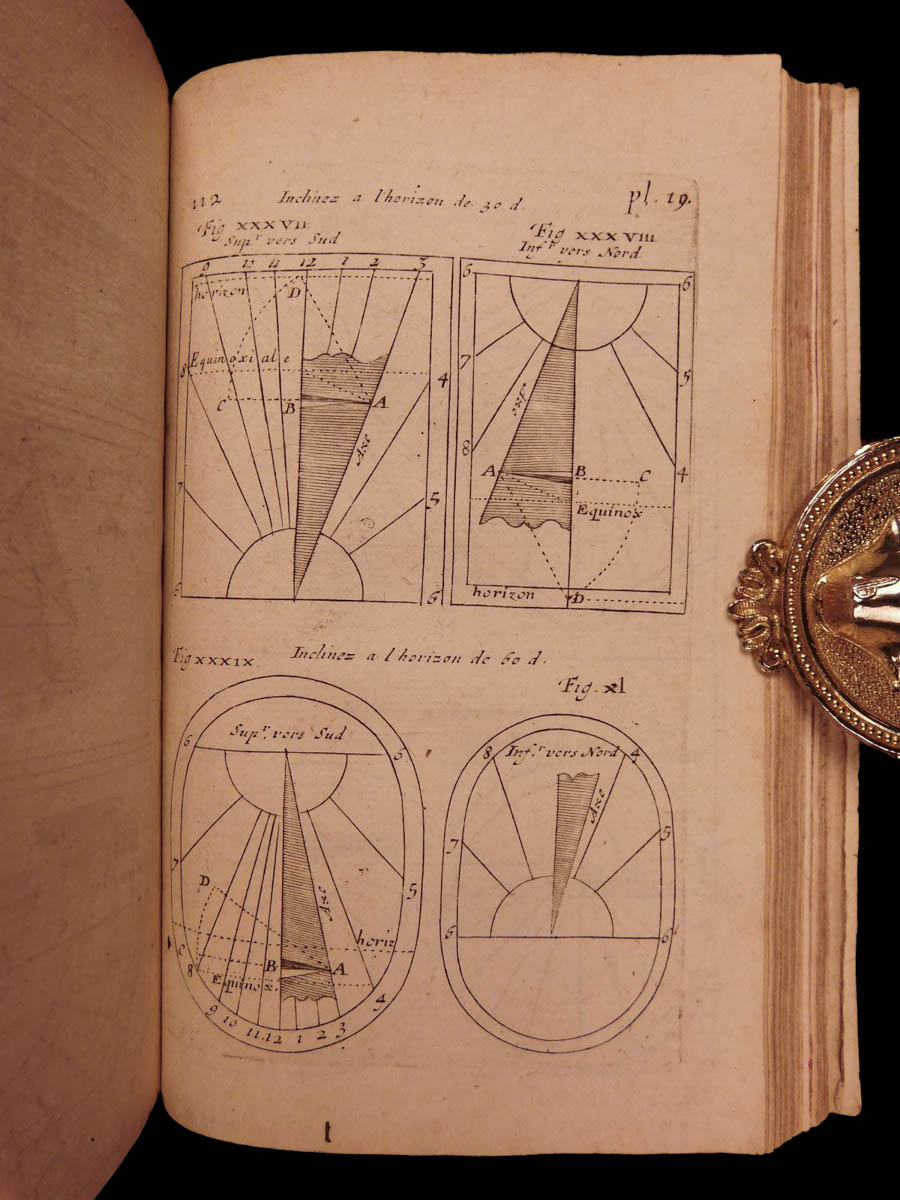 112 Inclinez a l'horizon de 30 d. pl. 19.
Fig XXXVII
Supr vers Sud
Fig XXXVIII
Infr vers Nord
9 10 11 12 1 2 3
horizon
D
Equinoxiale
8
4
C B A
Axe
7
5
6 6
6 6
Axe
7
5
8
A B C
4
Equinox
horizon D
Fig XXXIX Inclinez a l'horizon de 60 d.
Fig. xl
Supr. vers Sud
6 6
7
D
Axe
5
horiz
C
B A
8
Equinox.
9 10 11 12 1 2 3 4
8 Infr. vers Nord 4
Axe
7 5
6 6